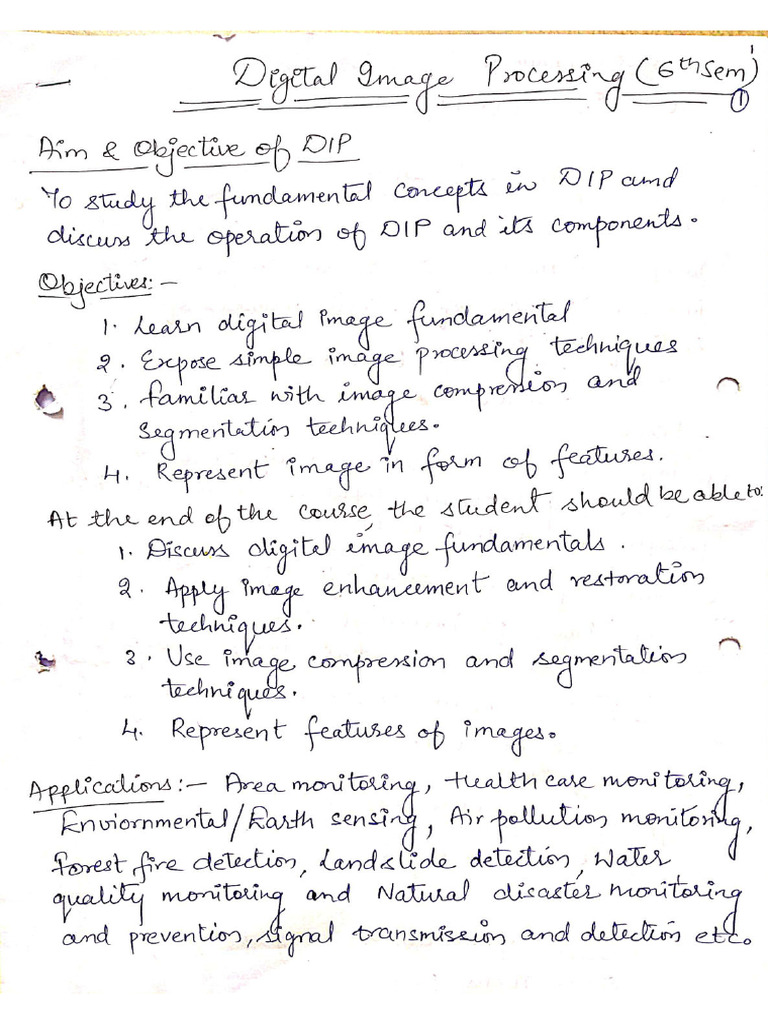 1
Digital Image Processing (6th Sem)
1
Aim & Objective of DIP
To study the fundamental concepts in DIP amd
discuss the operation of DIP and its components.
Objectives:-
1. Learn digital image fundamental
2. Expose simple image processing techniques
3. familiar with image compression and
segmentation techniques.
4. Represent image in form of features.
At the end of the course, the student should be able to:
1. Discuss digital image fundamentals.
2. Apply image enhancement and restoration
techniques.
3. Use image compression and segmentation
techniques.
4. Represent features of images.
Applications:- Area monitoring, Health care monitoring,
Enviornmental/Earth sensing, Air pollution monitoring,
Forest fire detection, Landslide detection, Water
quality monitoring and Natural disaster monitoring
and prevention, signal transmission and detection etc.